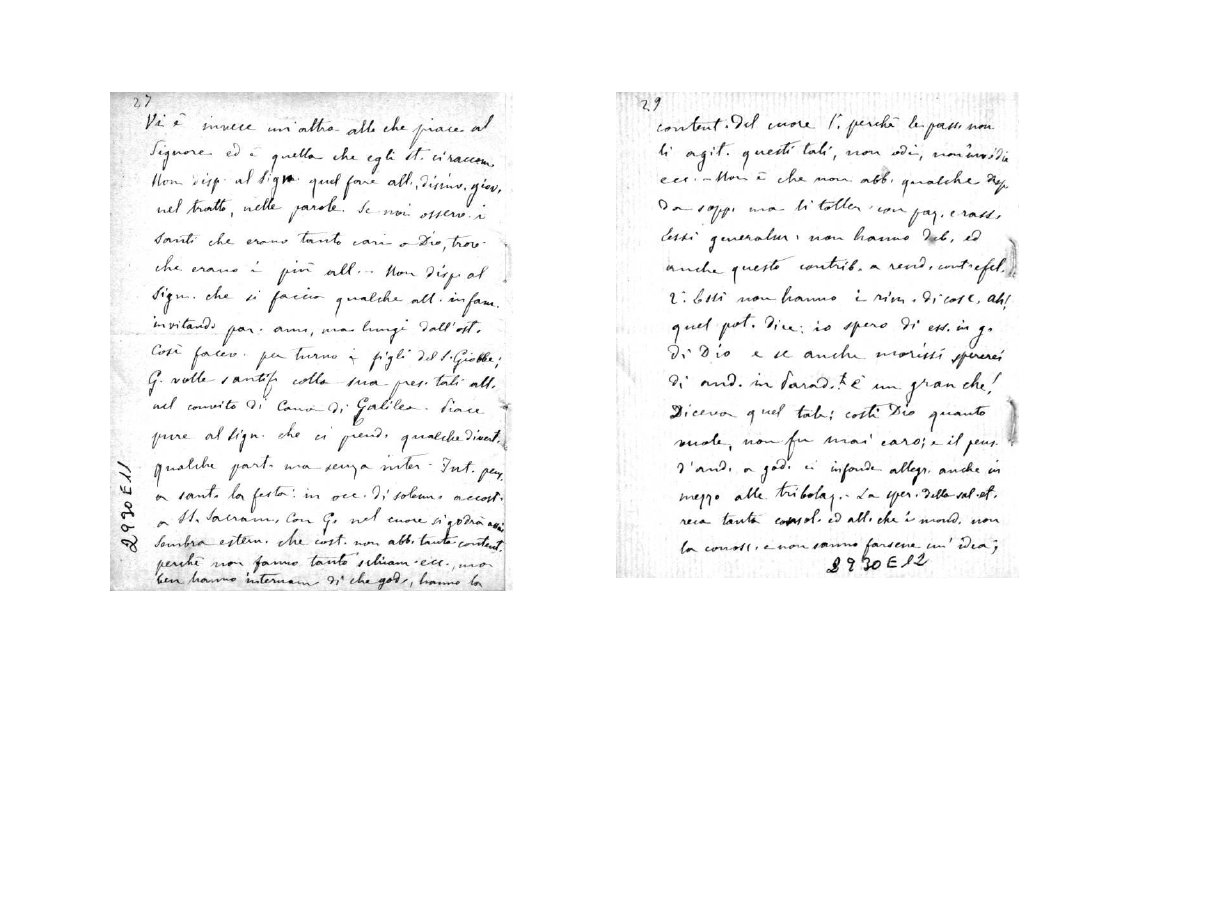 27
Vi è invece un'altra all. che piace al
Signore ed è quella che egli st. ci raccom.
Non disp. al Sign. quel fare all., disinv. giov.
nel tratto, nelle parole. Se noi osserv. i
Santi che erano tanto cari a Dio, trov.
che erano i più all. - Non disp. al
Sign. che si faccia qualche all. in fam.
invitando par. ami, ma lungi dall'ost.
Così facev. per turno i figli del S. Giobbe;
G. volle santif. colla sua pres. tali all.
nel convito di Cana di Galilea. Piace
pure al Sign. che ci prend. qualche divert.
qualche part. ma senza inter. - Int. pens.
a sant. la festa: in occ. di solenn. accost.
a SS. Sacram. Con G. nel cuore si godrà assai
Sembra estern. che cost. non abb. tanta content.
perchè non fanno tanto schiam. ecc., ma
ben hanno internam. di che god., hanno la
2930E11
29
content. del cuore 1°. perchè le pass. non
li agit. questi tali, non odi, non invidie
ecc. - Non è che non abb. qualche disp.
da sopp. ma li toller. con paz. e rass.
Essi generalm. non hanno deb. ed
anche questo contrib. a rend. cont. e fel.
2°. Essi non hanno i rim. di cosc. Ah!
quel pot. dire: io spero di ess. in g.
di Dio e se anche morissi spererei
di and. in Parad. È un gran che!
Diceva quel tale; costi Dio quanto
vuole, non fu mai caro; e il pens.
d'and. a god. ci infonde allegr. anche in
mezzo alle tribolaz. - La sper. della sal. et.
reca tanta consol. ed all. che i mond. non
la conosc. e non sanno farsene un' idea;
2930E12